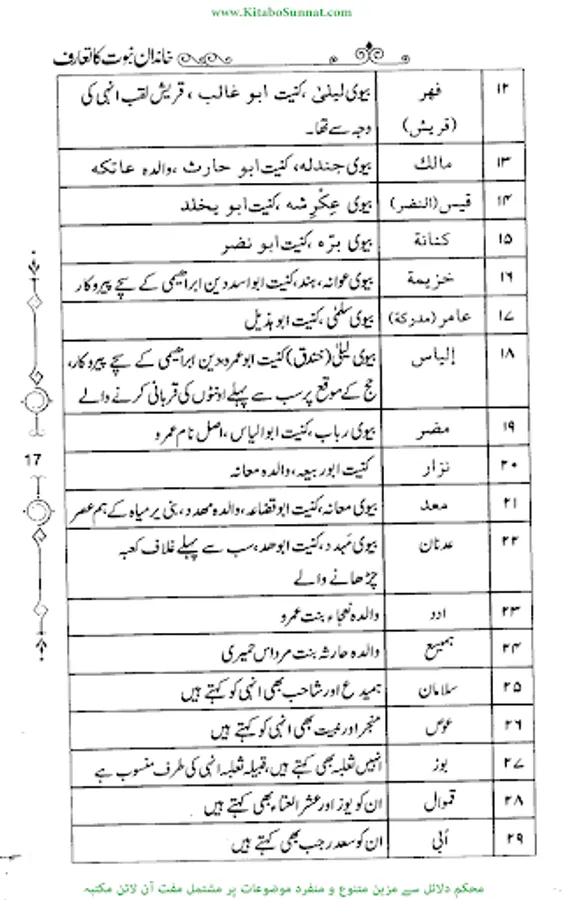 www.KitaboSunnat.com
خاندان نبوت کا تعارف
۱۲ فهر بیوی لیلیٰ، کنیت ابو غالب، قریش لقب انہی کی
(قریش) وجہ سے تھا۔
۱۳ مالك بیوی جندلہ، کنیت ابو حارث، والدہ عاتکہ
۱۴ قیس (النضر) بیوی عِکْرِشہ، کنیت ابو یخلد
۱۵ کنانة بیوی برّہ، کنیت ابو نضر
۱۶ خزیمة بیوی عوانہ، ہند، کنیت ابو اسد دین ابراہیمی کے سچے پیروکار
۱۷ عامر (مدرکة) بیوی سلمٰی، کنیت ابو ہذیل
۱۸ إلیاس بیوی لیلیٰ (خندق) کنیت ابو عمرو دین ابراہیمی کے سچے پیروکار،
حج کے موقع پر سب سے پہلے اونٹوں کی قربانی کرنے والے
۱۹ مضر بیوی رباب، کنیت ابوالیاس، اصل نام عمرو
۲۰ نزار کنیت ابو ربیعہ، والدہ معانہ
۲۱ معد بیوی معانہ، کنیت ابو قضاعہ، والدہ مهدد، بنی یرمیاہ کے ہم عصر
۲۲ عدنان بیوی مَہدد، کنیت ابو حد، سب سے پہلے غلاف کعبہ
چڑھانے والے
۲۳ ادد والدہ نعجاء بنت عمرو
۲۴ ہمیسع والدہ حارثہ بنت مرداس حمیری
۲۵ سلامان ہمیدع اور شاحب بھی انہی کو کہتے ہیں
۲۶ عوص منجر اور عبیت بھی انہی کو کہتے ہیں
۲۷ یوز انہیں ثعلبہ بھی کہتے ہیں، قبیلہ ثعلبہ انہی کی طرف منسوب ہے
۲۸ قموال ان کو یوز اور عشر العتاء بھی کہتے ہیں
۲۹ اُبی ان کو سعد رجب بھی کہتے ہیں
17
محکم دلائل سے مزین متنوع و منفرد موضوعات پر مشتمل مفت آن لائن مکتبہ